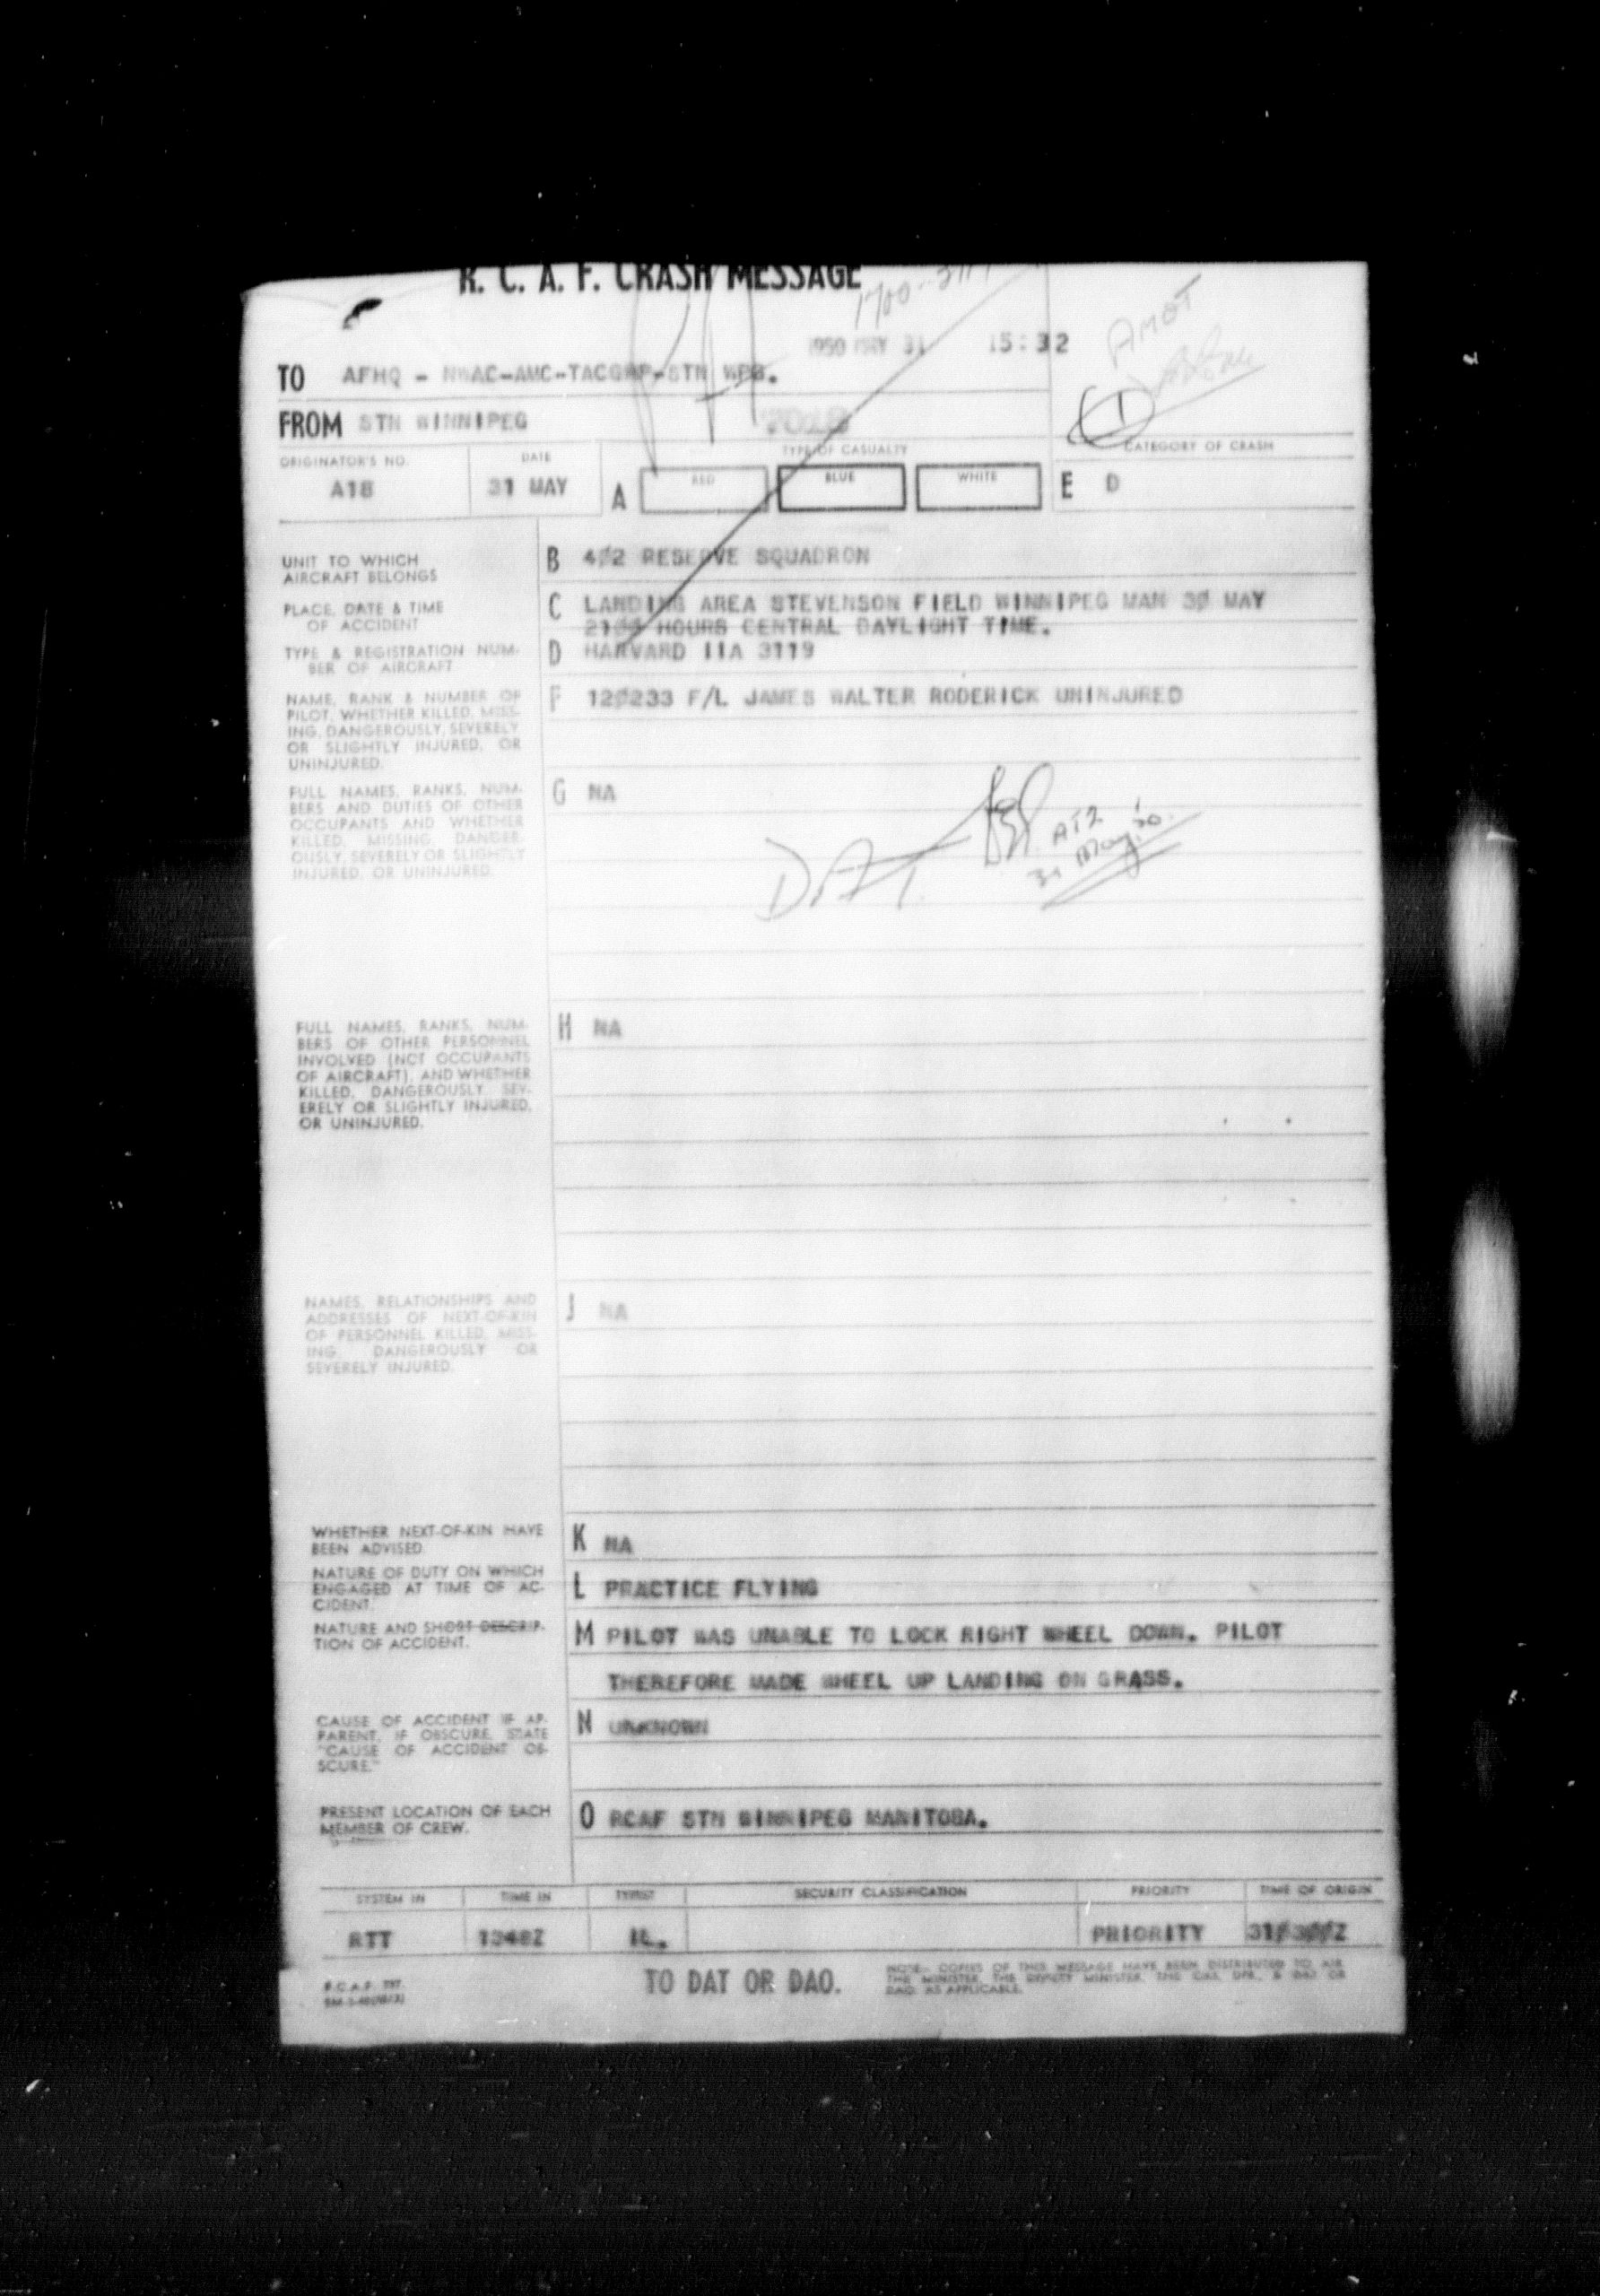 R. C. A. F. CRASH MESSAGE
1950 MAY 31 15:32
AMOT
TO AFHQ - NWAC-AMC-TACGRP-STN WPG.
FROM STN WINNIPEG
1
ORIGINATOR'S NO. DATE TYPE OF CASUALTY CATEGORY OF CRASH
A18 31 MAY A RED BLUE WHITE E D
UNIT TO WHICH
AIRCRAFT BELONGS
B 4Ø2 RESERVE SQUADRON
PLACE, DATE & TIME
OF ACCIDENT
C LANDING AREA STEVENSON FIELD WINNIPEG MAN 3Ø MAY
21ØØ HOURS CENTRAL DAYLIGHT TIME.
TYPE & REGISTRATION NUM-
BER OF AIRCRAFT
D HARVARD IIA 3119
NAME, RANK & NUMBER OF
PILOT, WHETHER KILLED, MISS-
ING, DANGEROUSLY, SEVERELY
OR SLIGHTLY INJURED, OR
UNINJURED.
F 12Ø233 F/L JAMES WALTER RODERICK UNINJURED
FULL NAMES, RANKS, NUM-
BERS AND DUTIES OF OTHER
OCCUPANTS AND WHETHER
KILLED, MISSING DANGER-
OUSLY, SEVERELY OR SLIGHTLY
INJURED, OR UNINJURED.
G NA
D.A.T. AT2
31 May '50.
FULL NAMES, RANKS, NUM-
BERS OF OTHER PERSONNEL
INVOLVED (NOT OCCUPANTS
OF AIRCRAFT), AND WHETHER
KILLED, DANGEROUSLY, SEV-
ERELY OR SLIGHTLY INJURED,
OR UNINJURED.
H NA
NAMES, RELATIONSHIPS AND
ADDRESSES OF NEXT-OF-KIN
OF PERSONNEL KILLED, MISS-
ING, DANGEROUSLY OR
SEVERELY INJURED.
J NA
WHETHER NEXT-OF-KIN HAVE
BEEN ADVISED.
K NA
NATURE OF DUTY ON WHICH
ENGAGED AT TIME OF AC-
CIDENT.
L PRACTICE FLYING
NATURE AND SHORT DESCRIP-
TION OF ACCIDENT.
M PILOT WAS UNABLE TO LOCK RIGHT WHEEL DOWN. PILOT
THEREFORE MADE WHEEL UP LANDING ON GRASS.
CAUSE OF ACCIDENT IF AP-
PARENT. IF OBSCURE, STATE
"CAUSE OF ACCIDENT OB-
SCURE."
N UNKNOWN
PRESENT LOCATION OF EACH
MEMBER OF CREW.
O RCAF STN WINNIPEG MANITOBA.
SYSTEM IN TIME IN TYPIST SECURITY CLASSIFICATION PRIORITY TIME OF ORIGIN
RTT 1348Z PRIORITY 31Ø3ØØZ
TO DAT OR DAO.
NOTE:- COPIES OF THIS MESSAGE HAVE BEEN DISTRIBUTED TO AIR
THE MINISTER, THE DEPUTY MINISTER, THE CAS, DPR, & DAO OR
DAO. AS APPLICABLE.